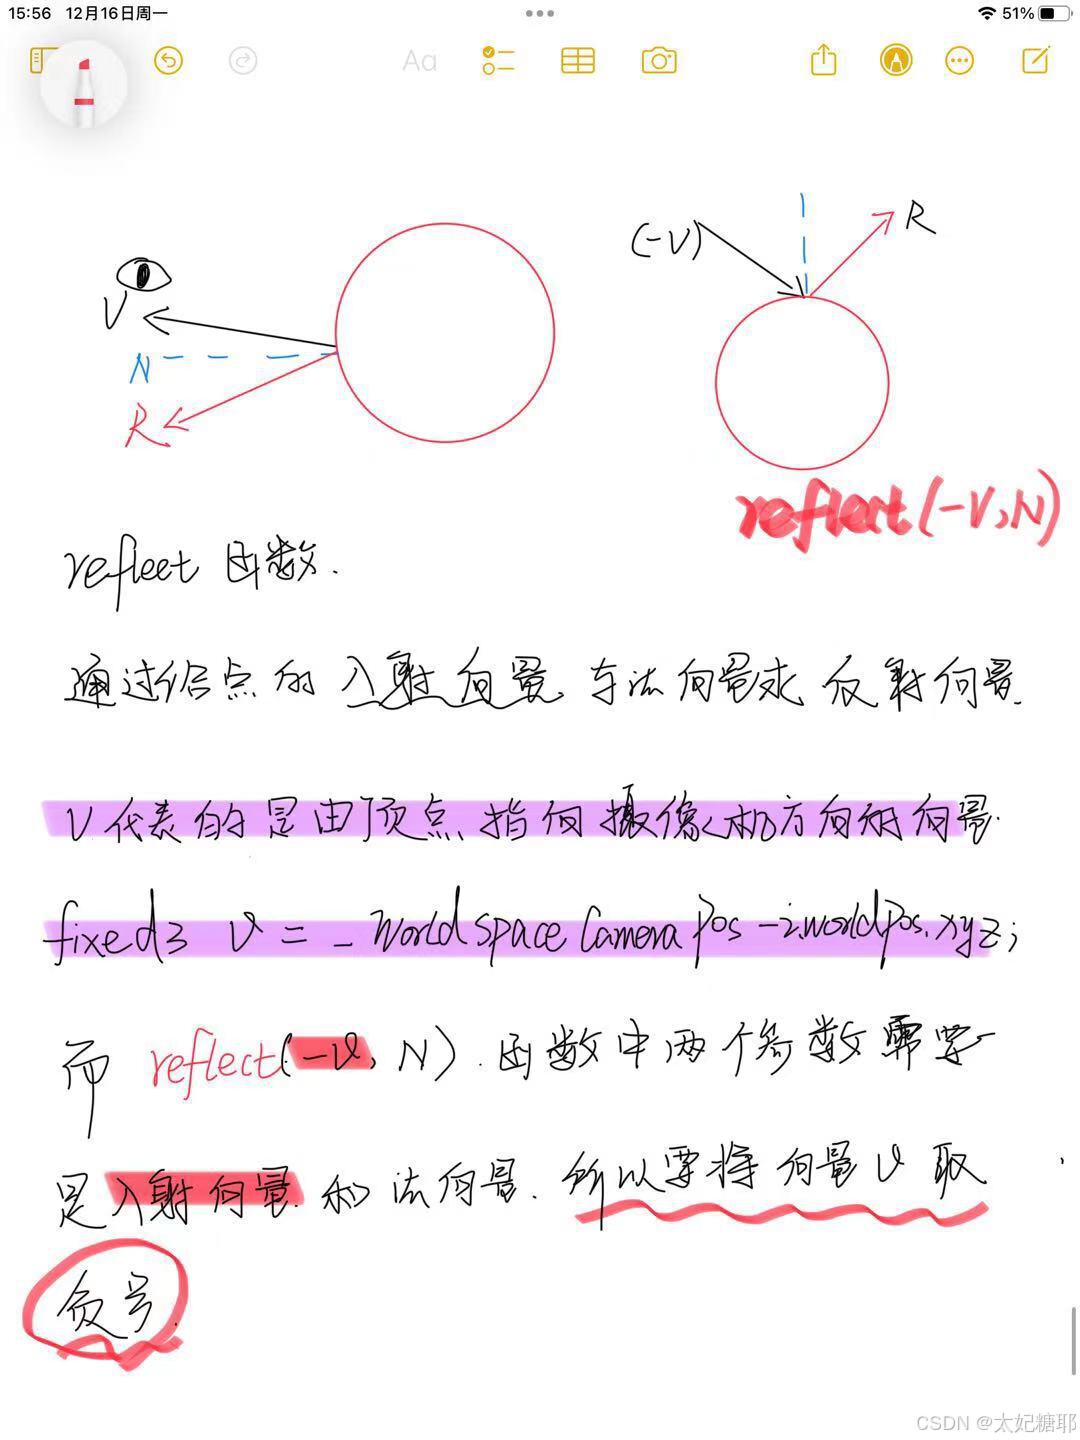 15:56 12月16日周一
51%
Aa
(-V)
R
V
N
R
reflect(-V,N)
reflect 函数.
通过给点的入射向量与法向量求反射向量.
V代表的是由顶点指向摄像机方向的向量.
fixed3 v = _WorldSpaceCameraPos -i.worldPos.xyz;
而 reflect(-v, N).函数中两个参数需要
是入射向量和法向量.所以要将向量v取
负号.
CSDN @太妃糖耶